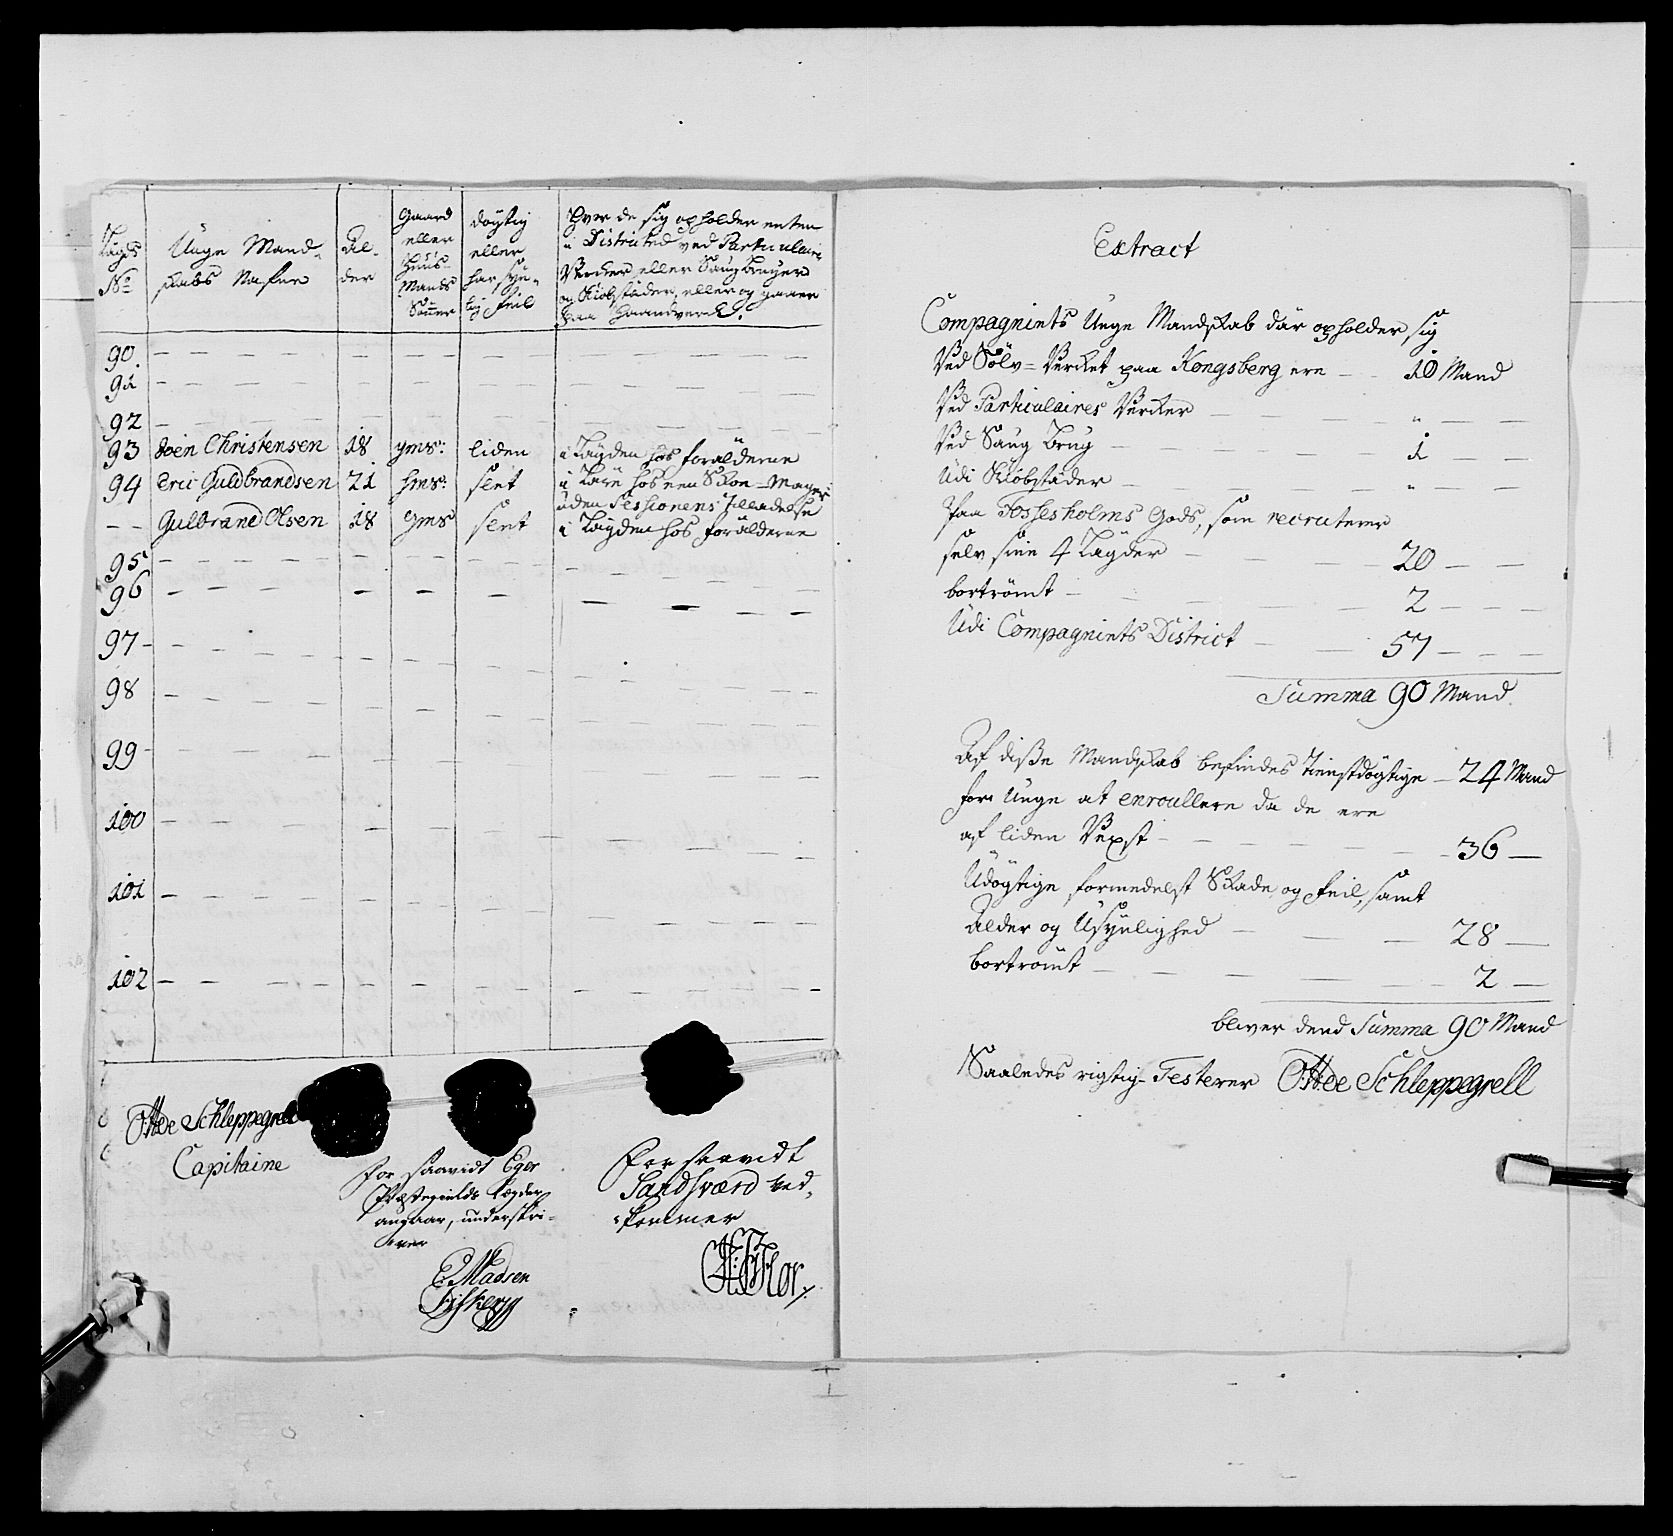 Lægds No
Unge Mand-
skabs Nafne
Al-
der
Gaard
eller
Huus-
Mands
Sönner
döygtig
eller
har syn-
lig Feil
Hvor de sig opholder enten
i Districted ved Particulair
Verker eller Saug Bruger
og Kiöbstæder, eller og gaaer
paa Haandverck.
90. — — — —
91. — — — —
92 — — — —
93 Joen Christensen 18 gms: liden i Lægden hos forælderne
94 Eric Guldbrandsen 21 hms: sent i Lære hos een Skoe-Mager
uden Sessionens tilladelse
— — Gulbrand Olsen 18 gms sent i Lægden hos forælderne
95 — — — —
96 — — — —
97 — — — —
98 — — — —
99 — — — —
100 — — — —
101 — — — —
102 — — — —
Otto Schleppegrell
Capitaine
for saavidt Eger
Præstegields Lægder
angaar, underskri-
ver
C: Madsen
For saavidt
Sandsværd ved-
kommer
Extract
Compagniets Unge Mandskab där opholder sig
Ved Sölv-Verket paa Kongsberg ere — 10 Mand
Ved Particulaires Verker — — " — —
Ved Saug Brug — — 1 — —
Udi Kiöbstæder — — " — —
Paa Fossesholms Gods, som recruterer
selv sine 4 Lægder — — 20 — —
bortrömt — — 2 — —
Udi Compagniets District — — 57 — —
Summa 90 Mand.
Af disse Mandskab befindes tienstdögtige — 24 Mand
for Unge at enroullere da de ere
af liden Vext — — 36 —
Udögtige formedelst Skade og Feil, samt
Alder og Usynlighed — — 28 —
bortrömt — — 2 —
bliver dend Summa 90 Mand
Saaledes rigtig Testerer Otto Schleppegrell